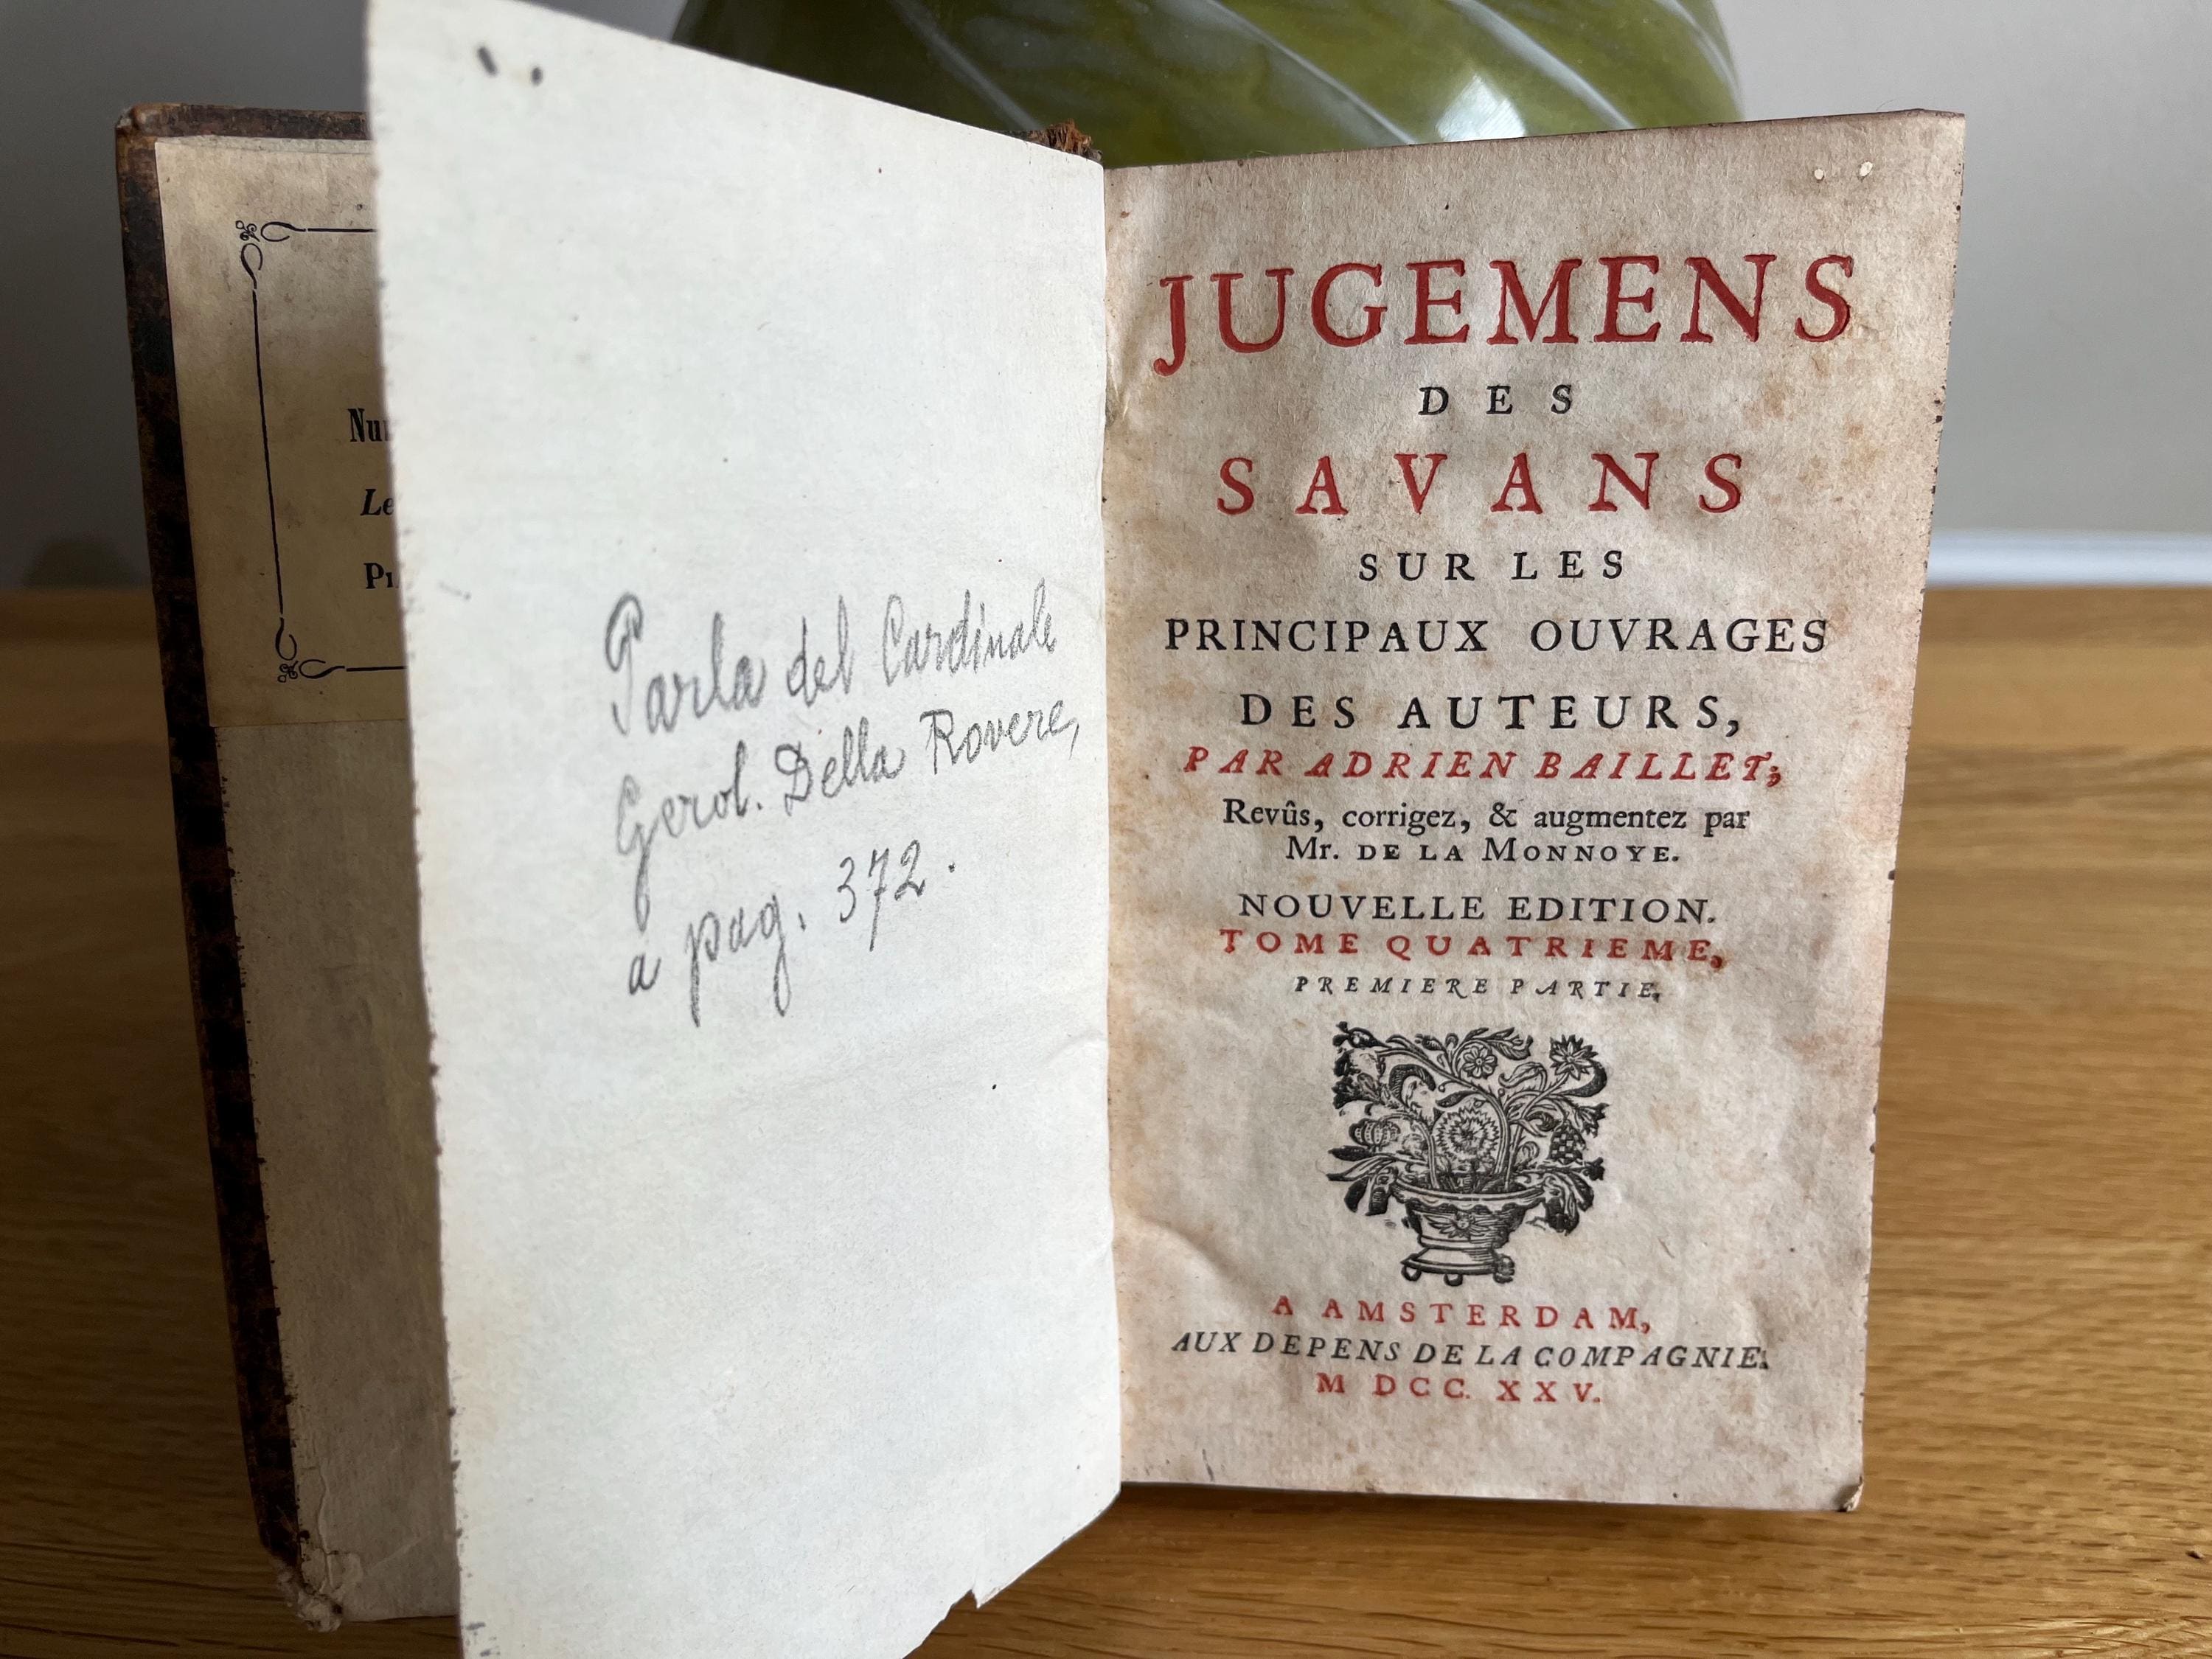 Parla del Cardinale
Gerol. Della Rovere,
a pag. 372.
JUGEMENS
DES
SAVANS
SUR LES
PRINCIPAUX OUVRAGES
DES AUTEURS,
PAR ADRIEN BAILLET;
Revûs, corrigez, & augmentez par
Mr. DE LA MONNOYE.
NOUVELLE EDITION.
TOME QUATRIEME,
PREMIERE PARTIE,
A AMSTERDAM,
AUX DEPENS DE LA COMPAGNIE.
M DCC. XXV.